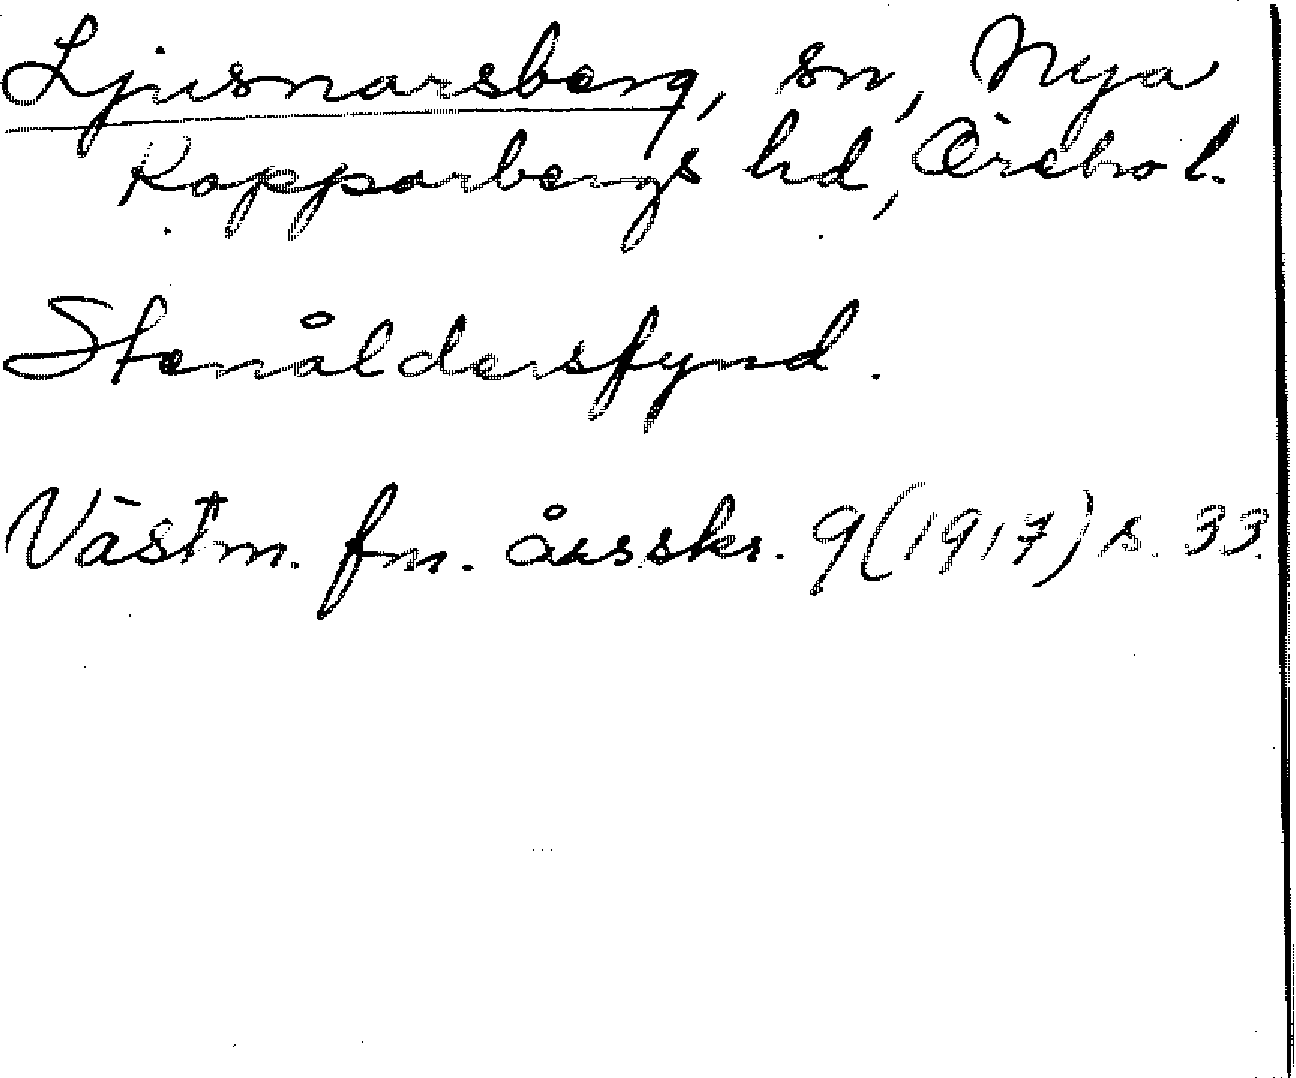 Ljusnarsberg, sn, Nya
Kopparbergs hd, Örebro l.
Stenåldersfynd.
Västm. fm. årsskr. 9 (1917) s. 33.